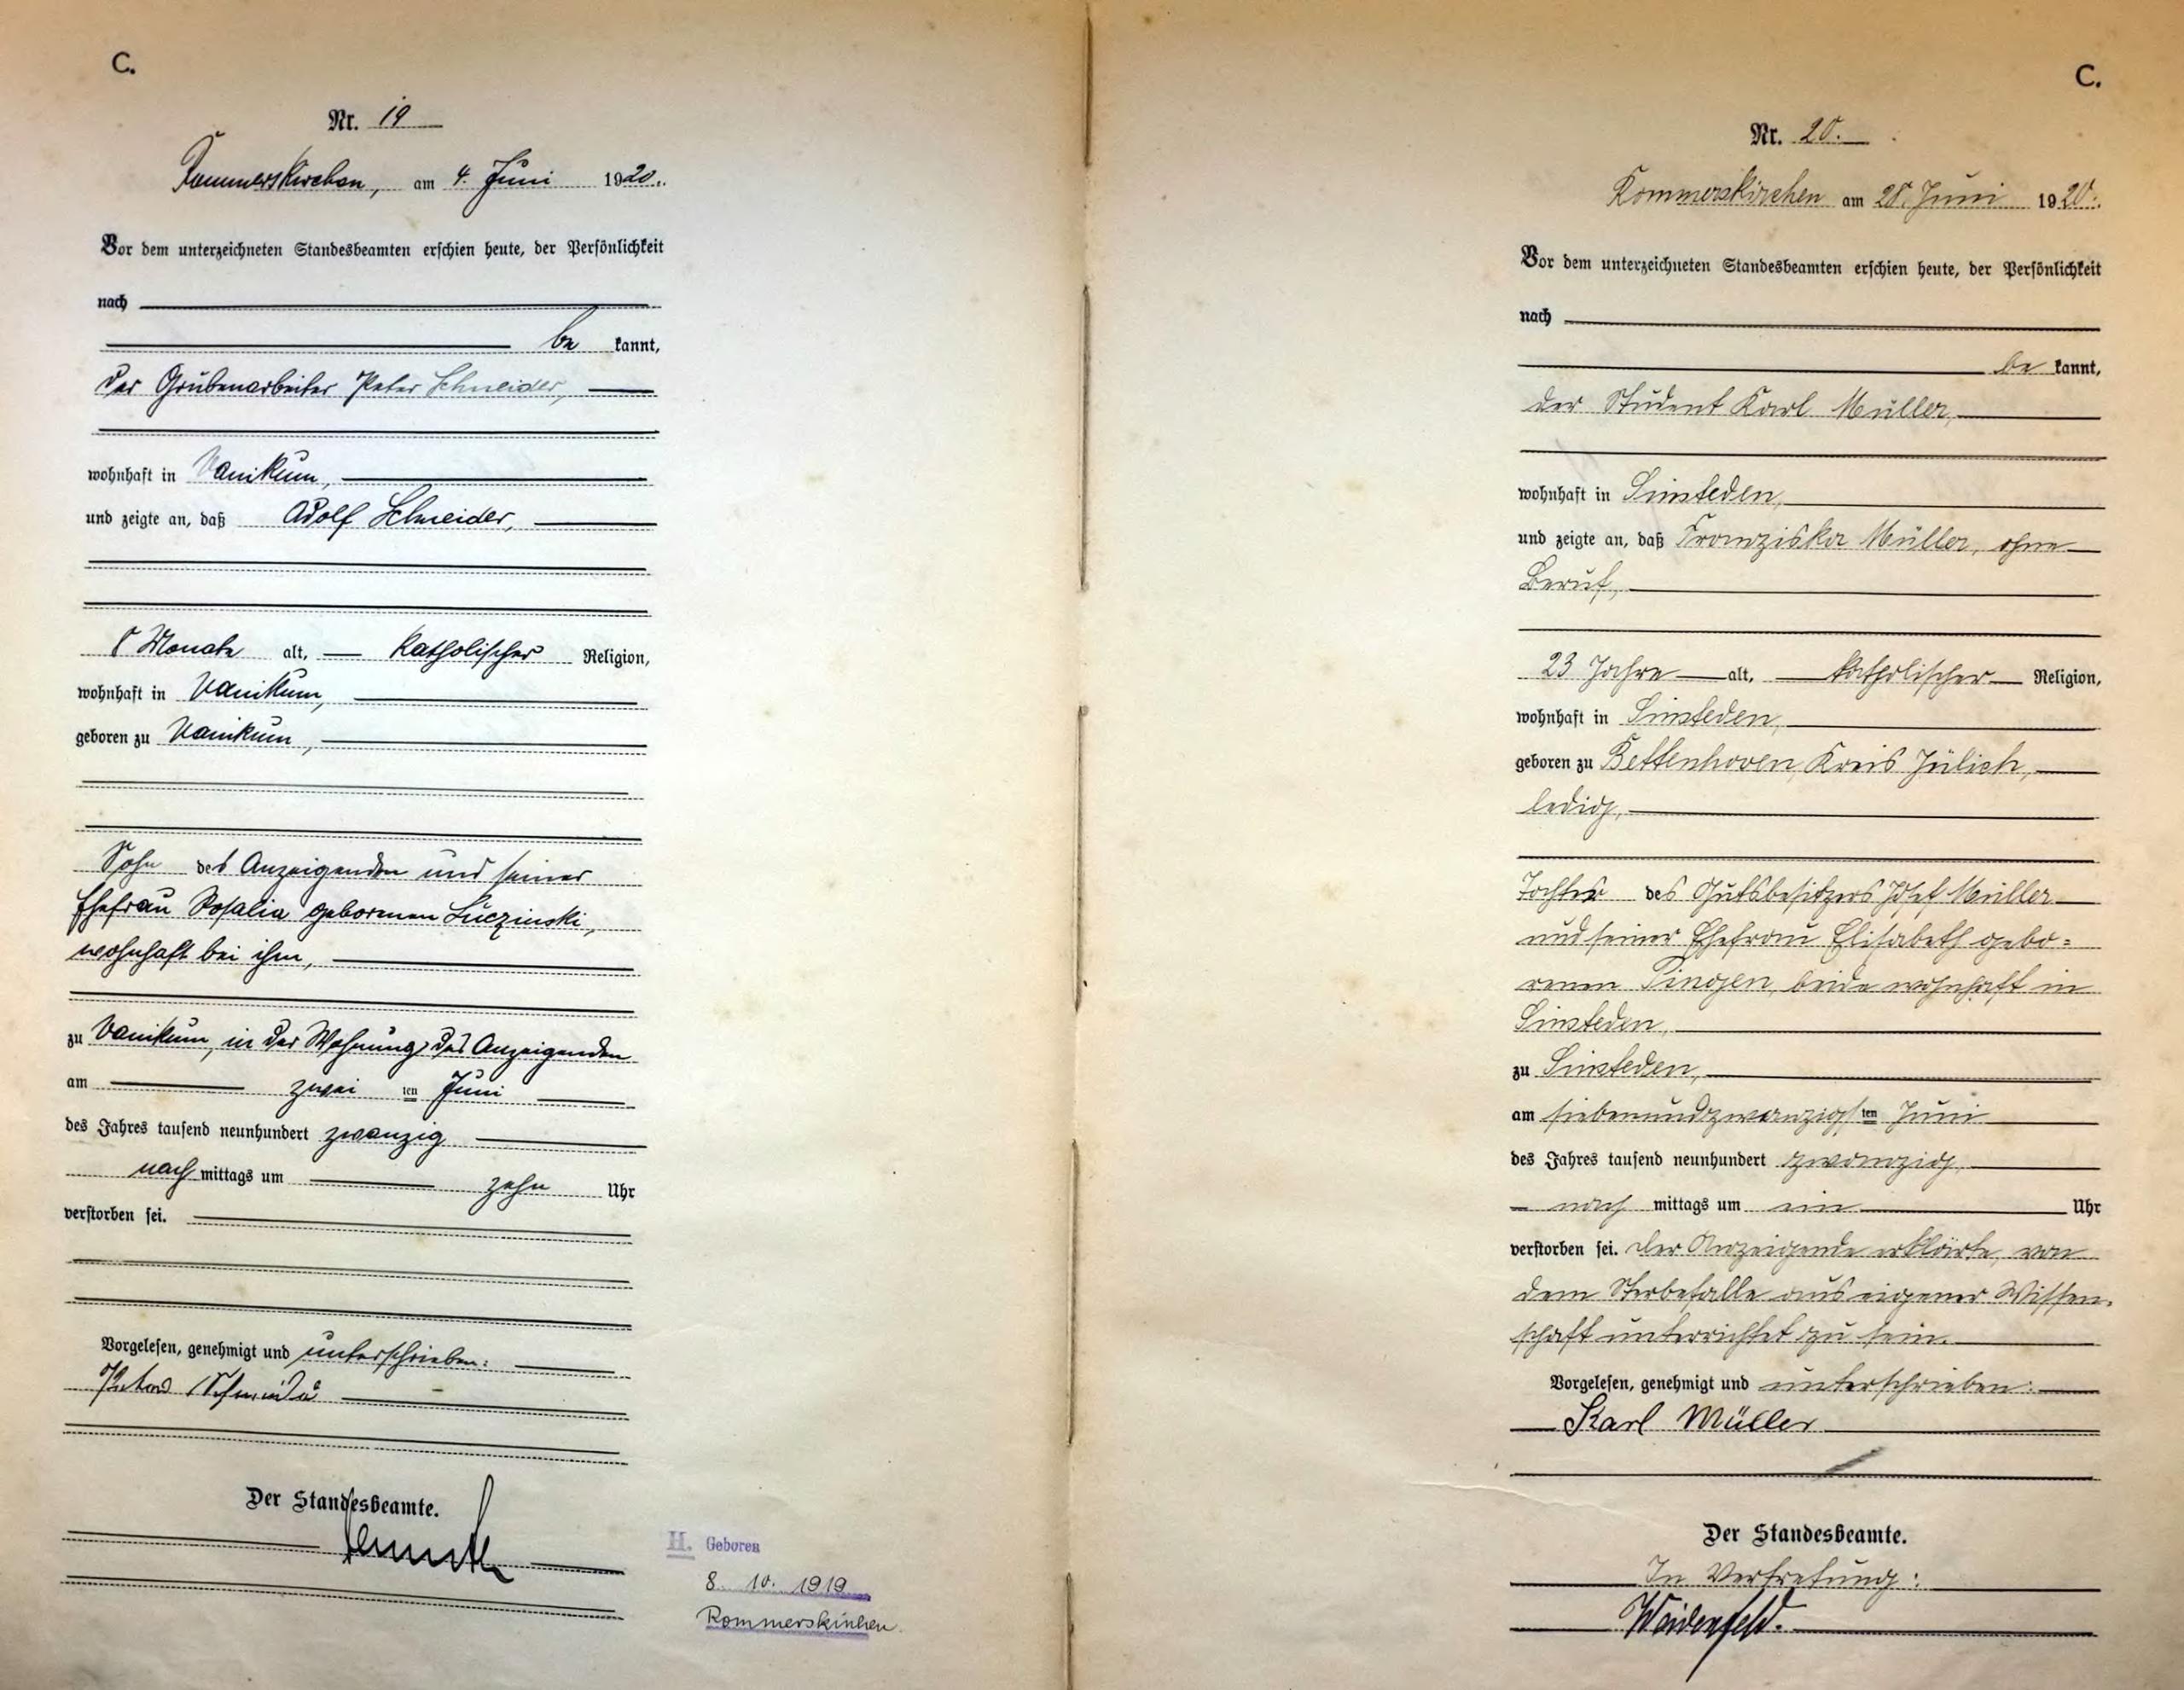 C.
Nr. 19
Rommerskirchen, am 4. Juni 1920.
Vor dem unterzeichneten Standesbeamten erschien heute, der Persönlichkeit
nach
be kannt,
der Grubenarbeiter Peter Schneider,
wohnhaft in Vanikum,
und zeigte an, daß Adolf Schneider,
8 Monate alt, katholischer Religion,
wohnhaft in Vanikum,
geboren zu Vanikum,
Sohn des Anzeigenden und seiner
Ehefrau Rosalia geborenen Luczinski,
wohnhaft bei ihm,
zu Vanikum, in der Wohnung des Anzeigenden
am zwei ten Juni
des Jahres tausend neunhundert zwanzig
nach mittags um zehn Uhr
verstorben sei.
Vorgelesen, genehmigt und unterschrieben:
Peter Schneider
Der Standesbeamte.
H. Geboren
8. 10. 1919
Rommerskirchen.
C.
Nr. 20.
Rommerskirchen am 28. Juni 1920.
Vor dem unterzeichneten Standesbeamten erschien heute, der Persönlichkeit
nach
be kannt,
der Student Karl Müller,
wohnhaft in Sinsteden,
und zeigte an, daß Franziska Müller, ohne
Beruf,
23 Jahre alt, katholischer Religion,
wohnhaft in Sinsteden,
geboren zu Bettenhoven, Kreis Jülich,
ledig,
Tochter des Gutsbesitzers Josef Müller
und seiner Ehefrau Elisabeth gebo=
renen Pingen, beide wohnhaft in
Sinsteden,
zu Sinsteden,
am siebenundzwanzigs ten Juni
des Jahres tausend neunhundert zwanzig,
nach mittags um ein Uhr
verstorben sei. Der Anzeigende erklärte, von
dem Sterbefalle aus eigener Wissen-
schaft unterrichtet zu sein.
Vorgelesen, genehmigt und unterschrieben:
Karl Müller
Der Standesbeamte.
In Vertretung:
Weidenfeld.